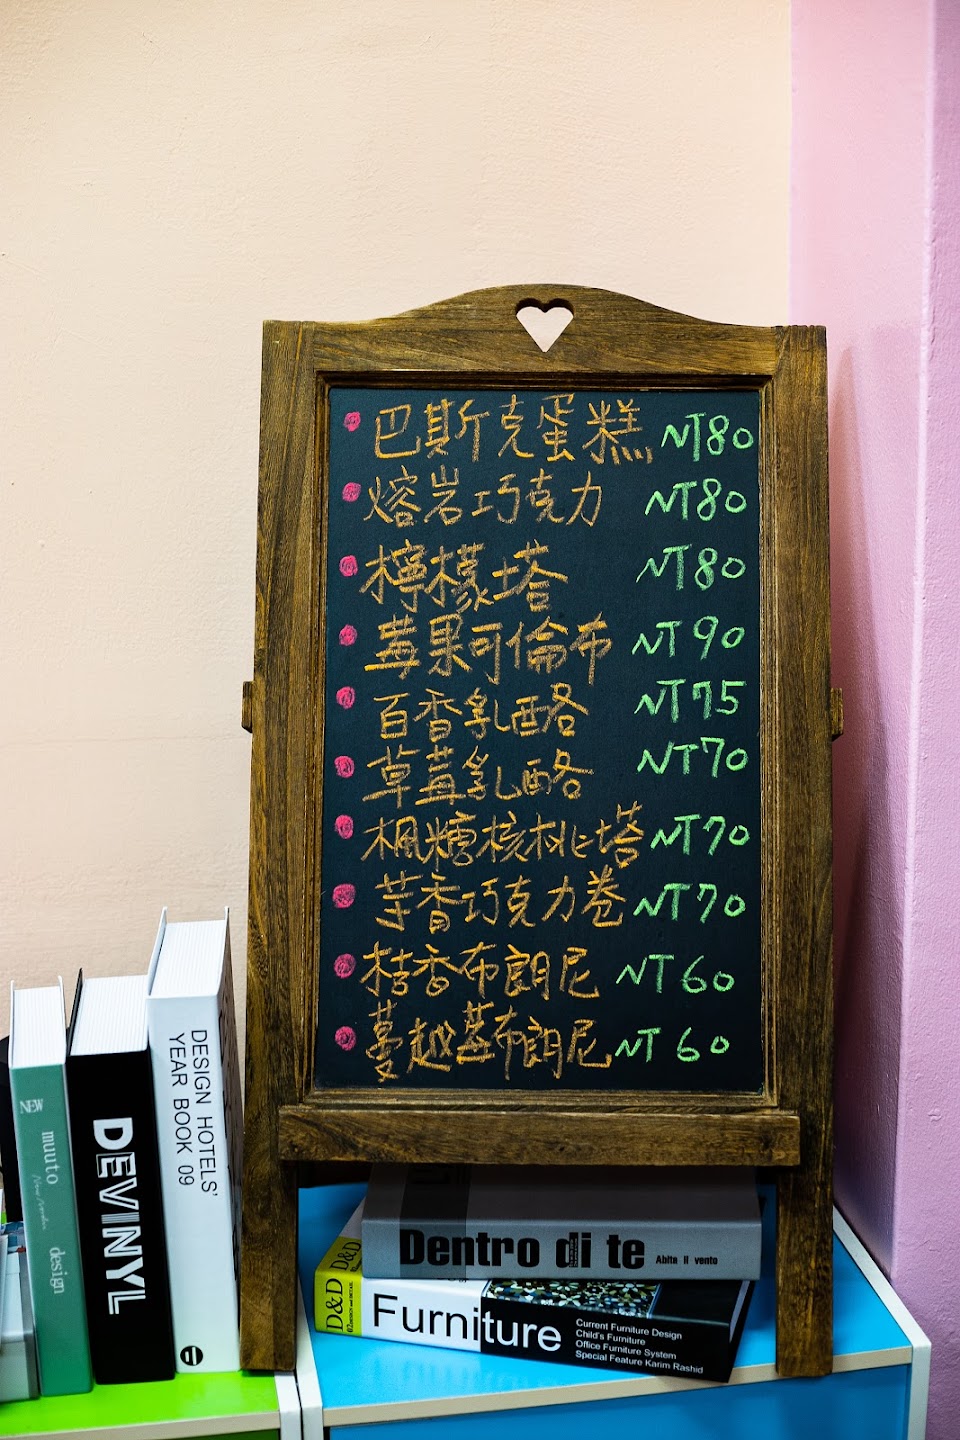 巴斯克蛋糕 NT80
熔岩巧克力 NT80
檸檬塔 NT80
莓果可倫布 NT90
百香乳酪 NT75
草莓乳酪 NT70
楓糖核桃塔 NT70
芋香巧克力卷 NT70
桔香布朗尼 NT60
蔓越莓布朗尼 NT60
NEW
muuto
New Nordic
design
DEVINYL
DESIGN HOTELS'
YEAR BOOK 09
Dentro di te Abita il vento
D&D
D&D
Furniture
Current Furniture Design
Child's Furniture
Office Furniture System
Special Feature Karim Rashid